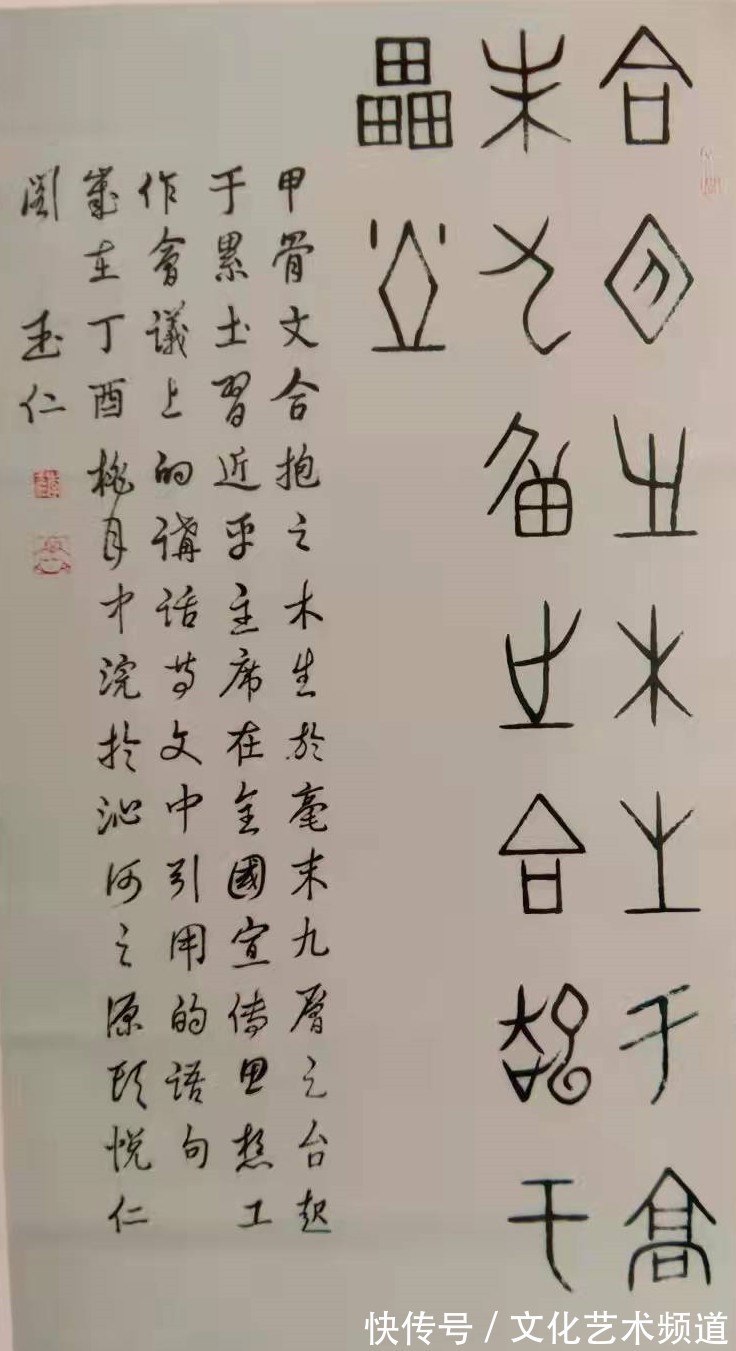 合抱之木生于毫
末九層之台起于
累土
甲骨文合抱之木生於毫末九層之台起
于累土習近平主席在全國宣傳思想工
作會議上的講話等文中引用的語句
歲在丁酉桃月中浣於沁河之源頤悅仁
閣 玉仁
快传号 / 文化艺术频道